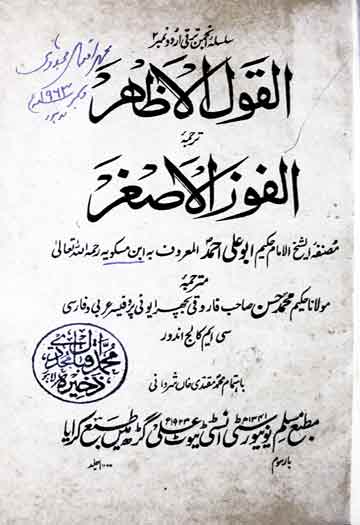 سلسلہ انجمن ترقی اردو نمبر ۲
القول الاظہر
ترجمہ
الفوز الاصغر
مصنفہ الشیخ الامام حکیم ابو علی احمد المعروف بہ ابن مسکویہ رحمۃ اللہ تعالیٰ
مترجمہ
مولانا حکیم محمد حسن صاحب فاروقی بچھرایونی پروفیسر عربی و فارسی
سی ایم کالج اندور
باہتمام محمد مقتدیٰ خاں شروانی
مطبع مسلم یونیورسٹی انسٹی ٹیوٹ علی گڑھ میں طبع کرایا
بار سوم
۱۰۰۰ جلد
محمد اقبال مجددی
ذخیرہ